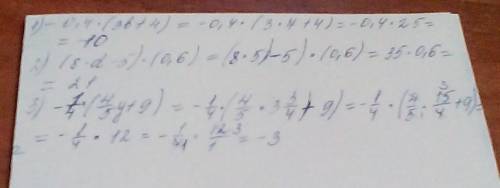 1) -0,4·(3b+4) = -0,4·(3·4+4)=-0,4·25=
= -10
2) (8·d-5)·(0,6) = (8·5)-5)·(0,6)=35·0,6=
= 21
3) -1/4·(4/5y+9) = -1/4·(4/5·3 3/4+9)=-1/4·(4/5·15/4+9)=
= -1/4·12 = -1/4·12/1= -3